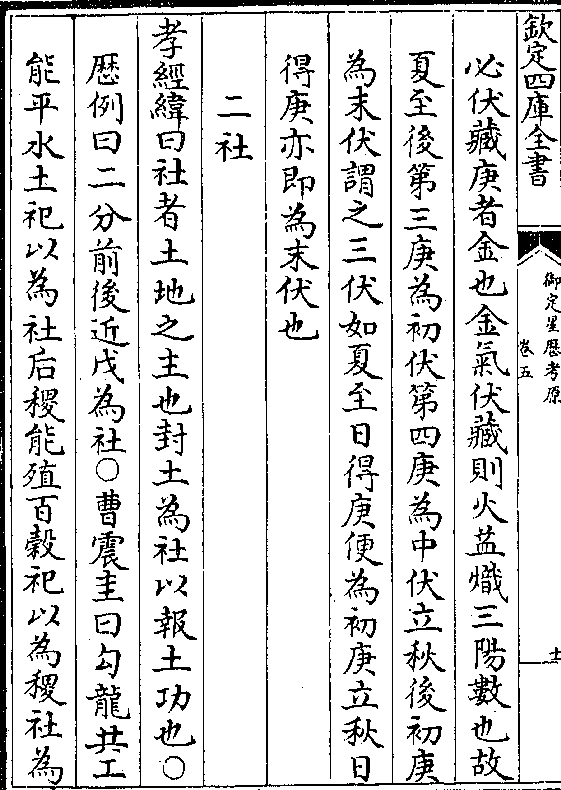 欽定四庫全書
御定星歷考原
卷五
十
必伏藏庚者金也金氣伏藏則火益熾三陽數也故
夏至後第三庚為初伏第四庚為中伏立秋後初庚
為末伏謂之三伏如夏至日得庚便為初庚立秋日
得庚亦即為末伏也
二社
孝經緯曰社者土地之主也封土為社以報土功也○
歴例曰二分前後近戊為社○曹震圭曰勾龍共工
能平水土祀以為社后稷能殖百穀祀以為稷社為